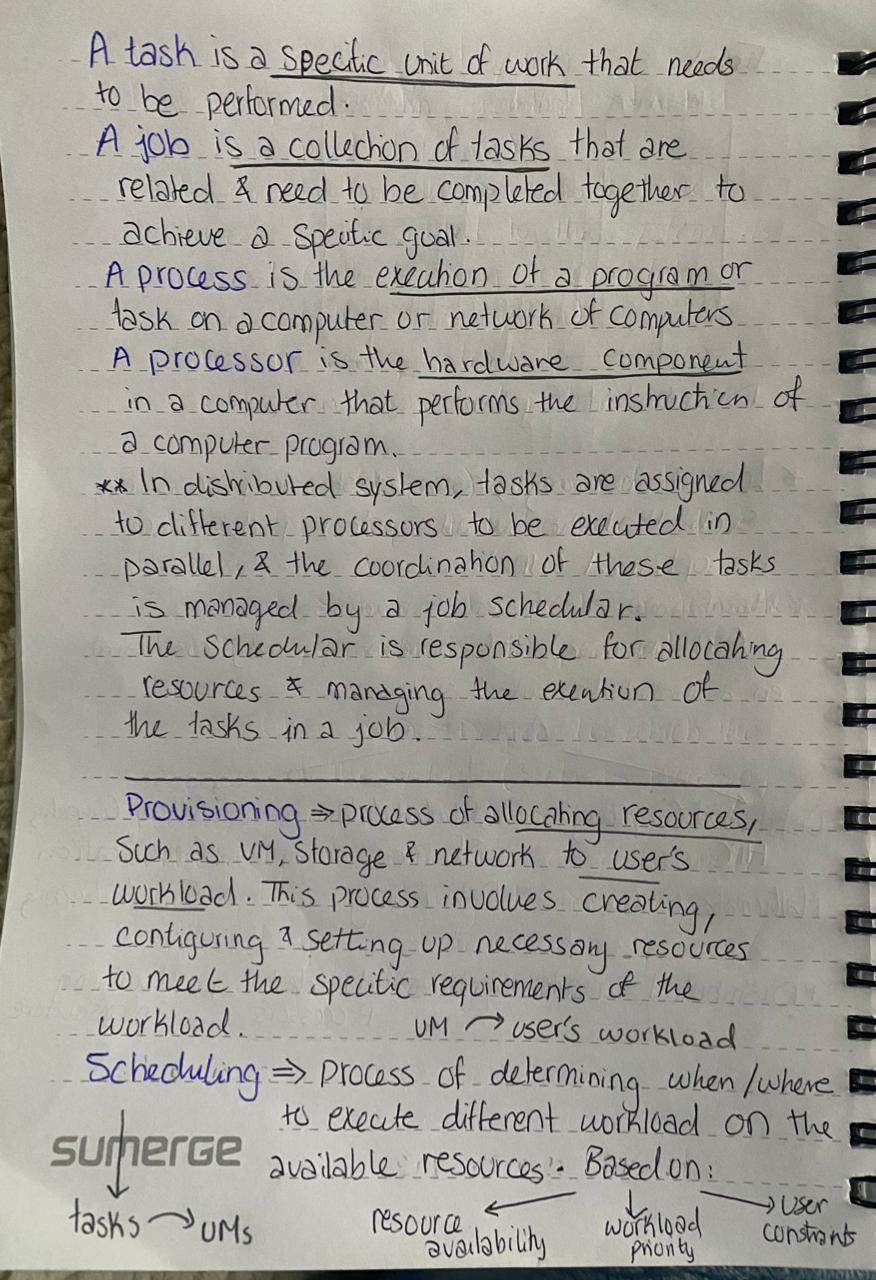 A task is a specific unit of work that needs
to be performed.
A job is a collection of tasks that are
related & need to be completed together to
achieve a specific goal.
A process is the execution of a program or
task on a computer or network of computers
A processor is the hardware component
in a computer that performs the instruction of
a computer program.
** In distributed system, tasks are assigned
to different processors to be executed in
parallel, & the coordination of these tasks
is managed by a job schedular.
The schedular is responsible for allocating
resources & managing the execution of
the tasks in a job.
Provisioning ⇒ process of allocating resources,
Such as VM, storage & network to user's
workload. This process involves creating,
configuring & setting up necessary resources
to meet the specific requirements of the
workload. VM → user's workload
Scheduling ⇒ process of determining when/where
to execute different workload on the
sumerge
available resources. Based on:
tasks → VMs
resource availability
workload priority
user constraints